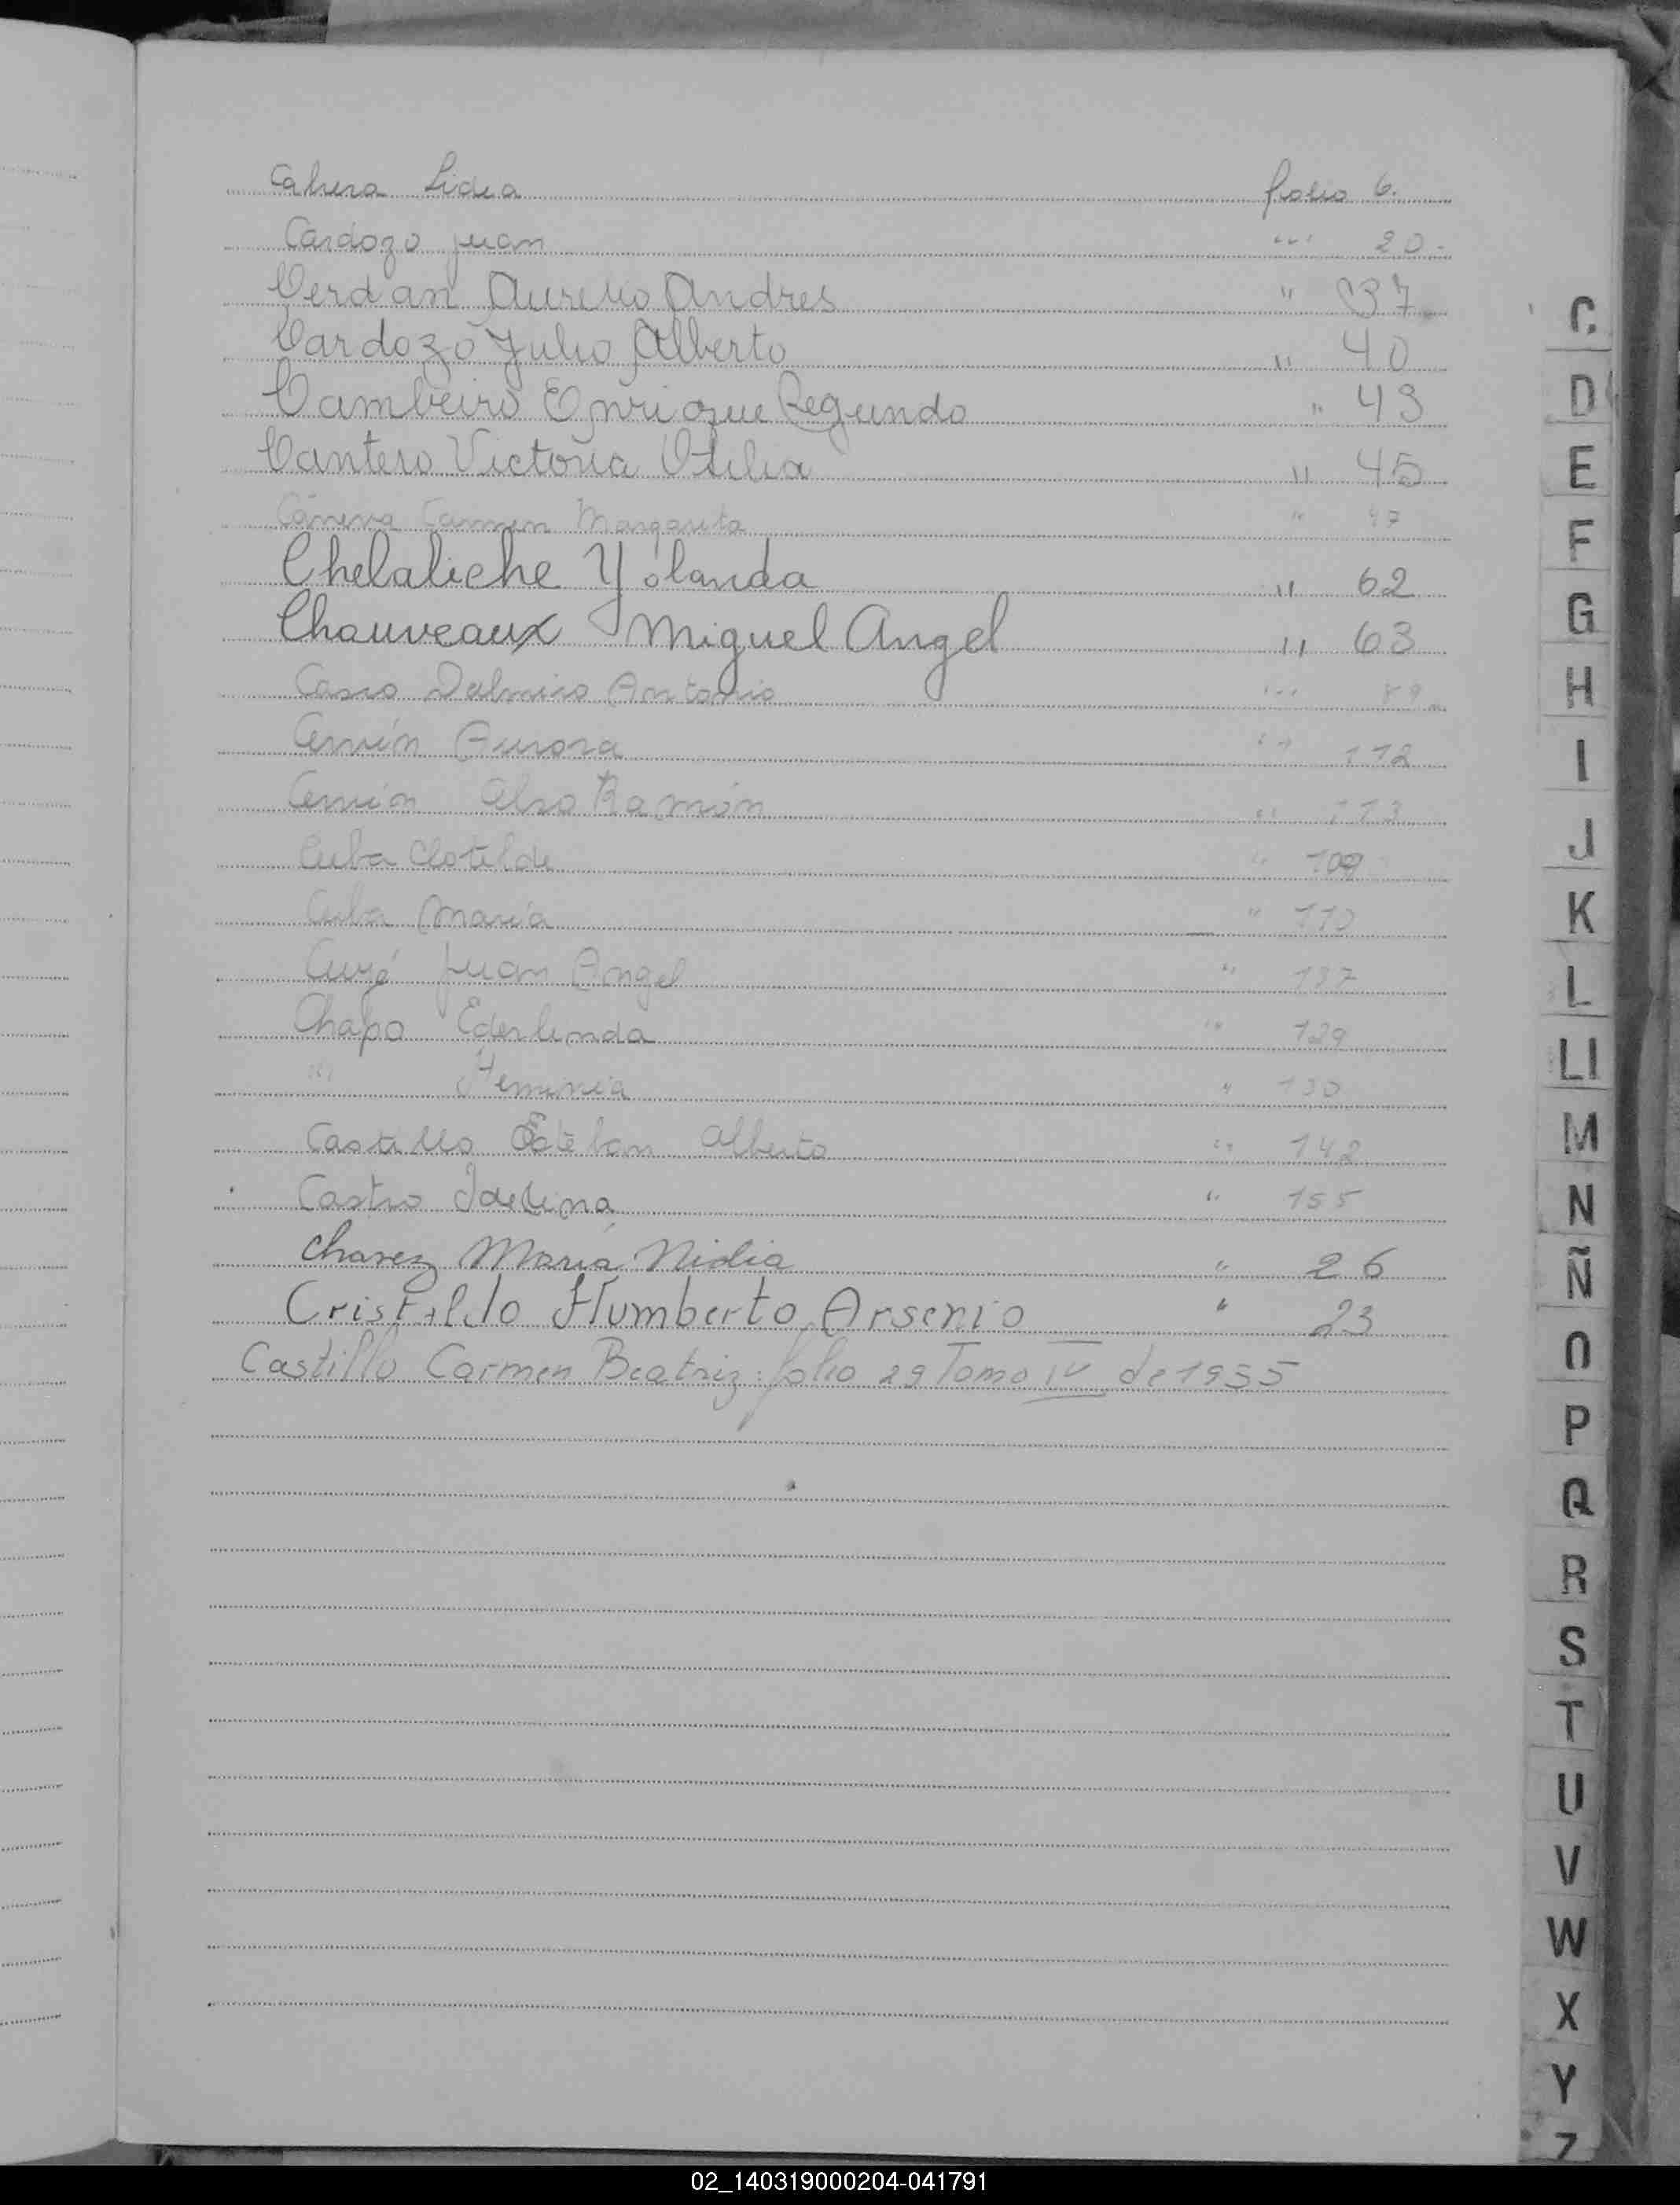 Cabrera Lidia folio 6.
Cardozo Juan " 20.
Cerdan Aurelio Andres " 37
Cardozo Julio Alberto " 40
Cambeiro Enrique Segundo " 43
Cantero Victoria Otilia " 45
Cáneva Carmen Margarita " 47
Chelaliche Yolanda " 62
Chauveaux Miguel Angel " 63
Casco Dalmiro Antonio " 89
Cerrión Aurora " 112
Celso Ramón " 113
Cuba Clotilde " 109
Cuba María " 110
Juan Angel " 137
Chapo Ederlinda " 129
" Herminia " 130
Castillo Esteban Alberto " 142
Castro Idelina " 155
Chavez María Nidia " 26
Cristaldo Humberto Arsenio " 23
Castillo Carmen Beatriz: folio 29 Tomo IV de 1955
C
D
E
F
G
H
I
J
K
L
Ll
M
N
Ñ
O
P
Q
R
S
T
U
V
W
X
Y
Z
02_140319000204-041791